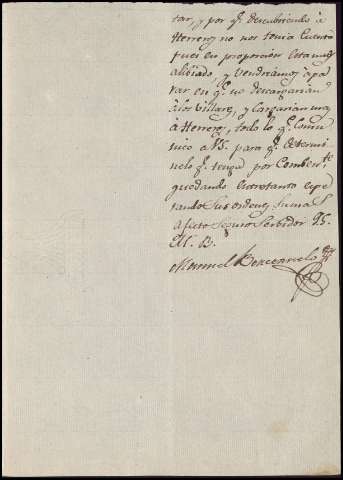 tar, y por q.e descubriendo à
Herrera no nos tenia Cuenta
pues en proporcion esta muy
alibiado, y vendriamos à pa
rar en q.e no descargarian
à los Villares, y Cargarian mas
à Herrera, todo lo q.e Comu
nico a VS. para q.e determi
nelo q.e tenga por Combente
quedando entretanto espe
rando Sus ordenes Su mas
Afecto Seguro Servidor QS.
M. B.
Manuel